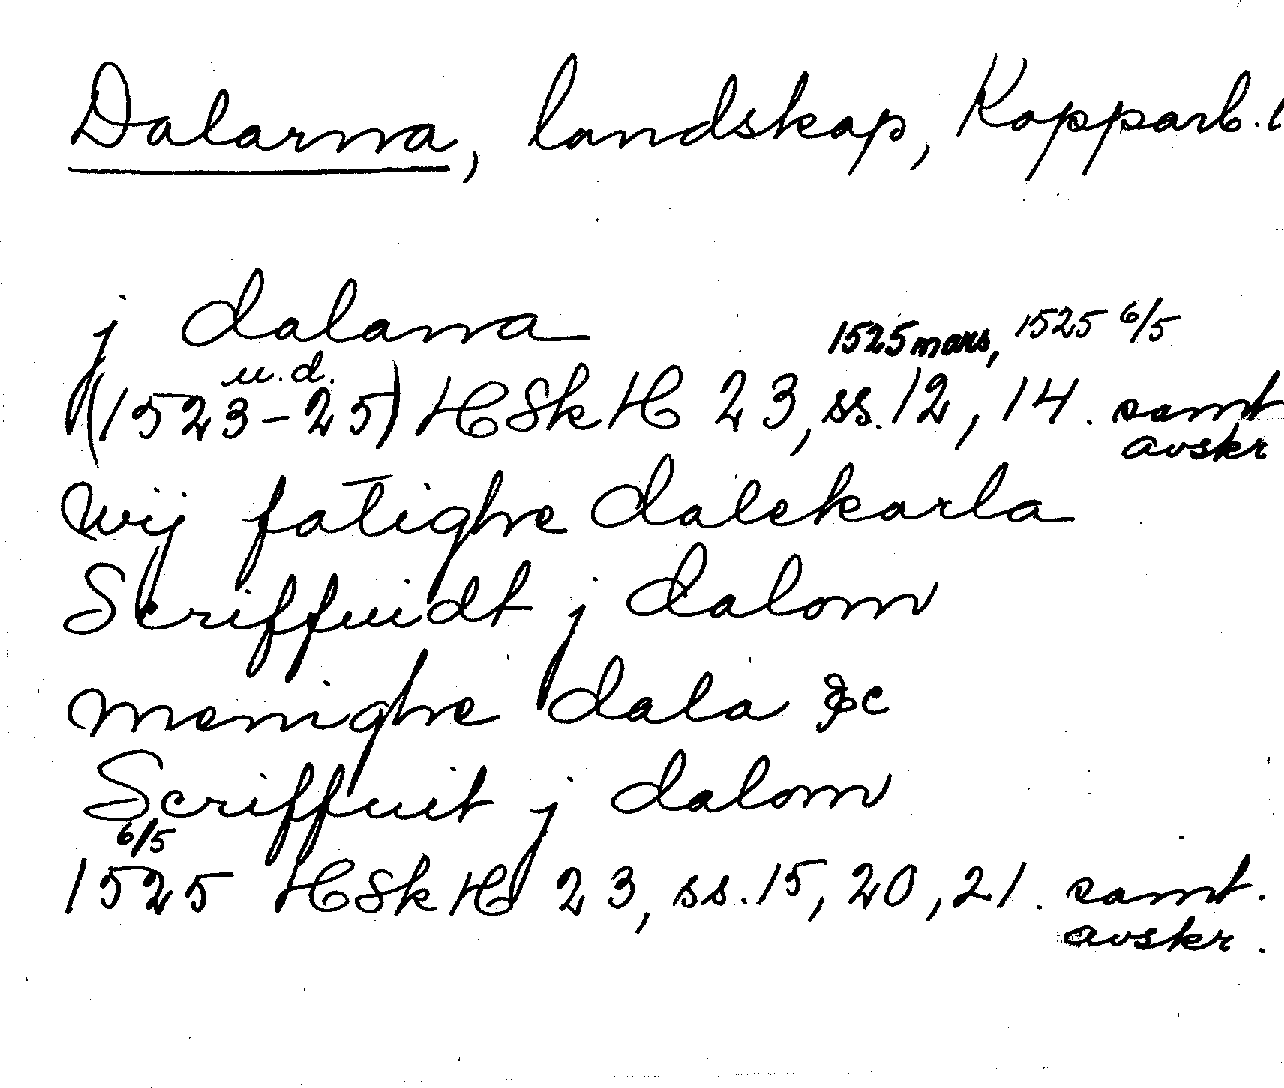 Dalarna, landskap, Kopparb. l
j dalarna
1525 mars, 1525 6/5
u.d.
(1523-25) HSkH 23, ss. 12, 14. samt
avskr
wij fatighe dalekarla
Scriffuidt j dalom
menighe dala &c
Scriffuit j dalom
6/5
1525 HSkH 23, ss. 15, 20, 21. samt.
avskr.